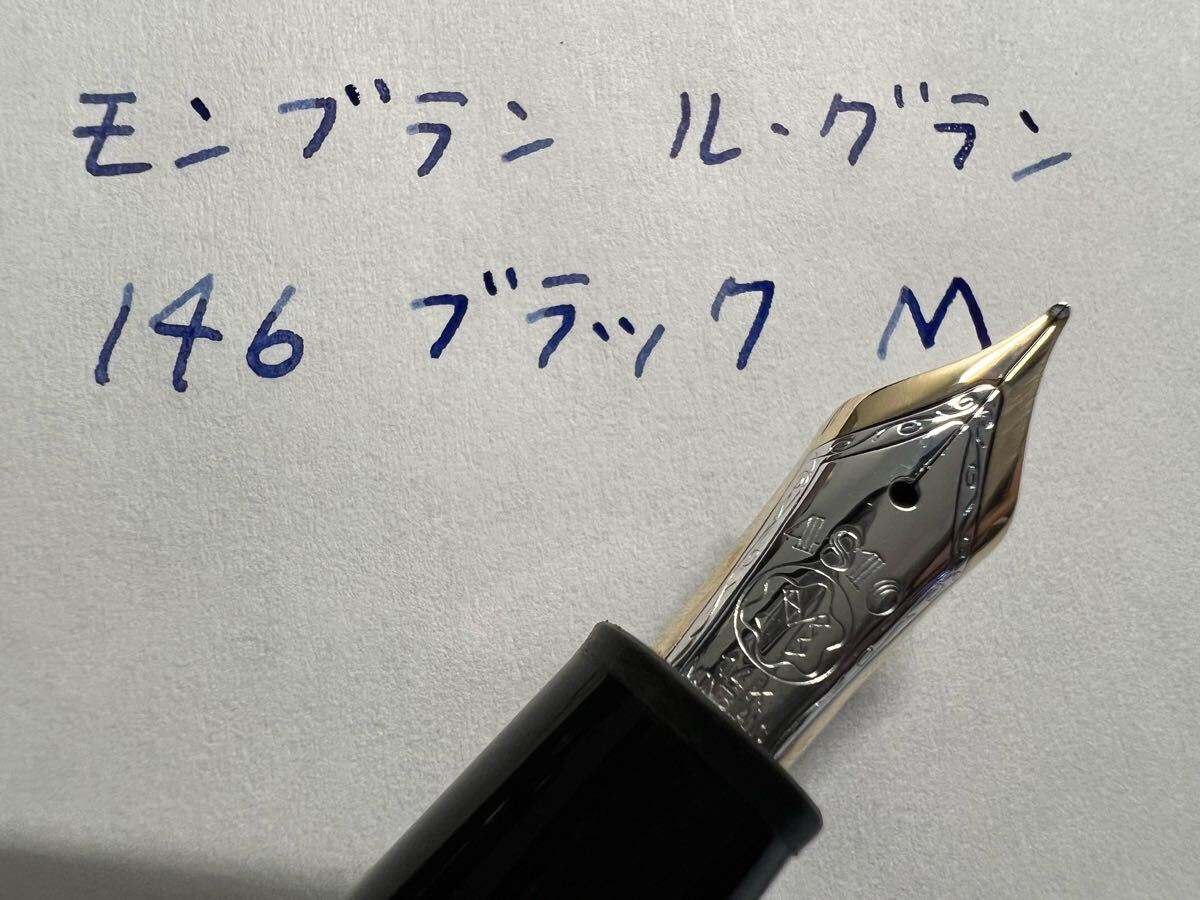 モンブラン ル・グラン
146 ブラック M
4810